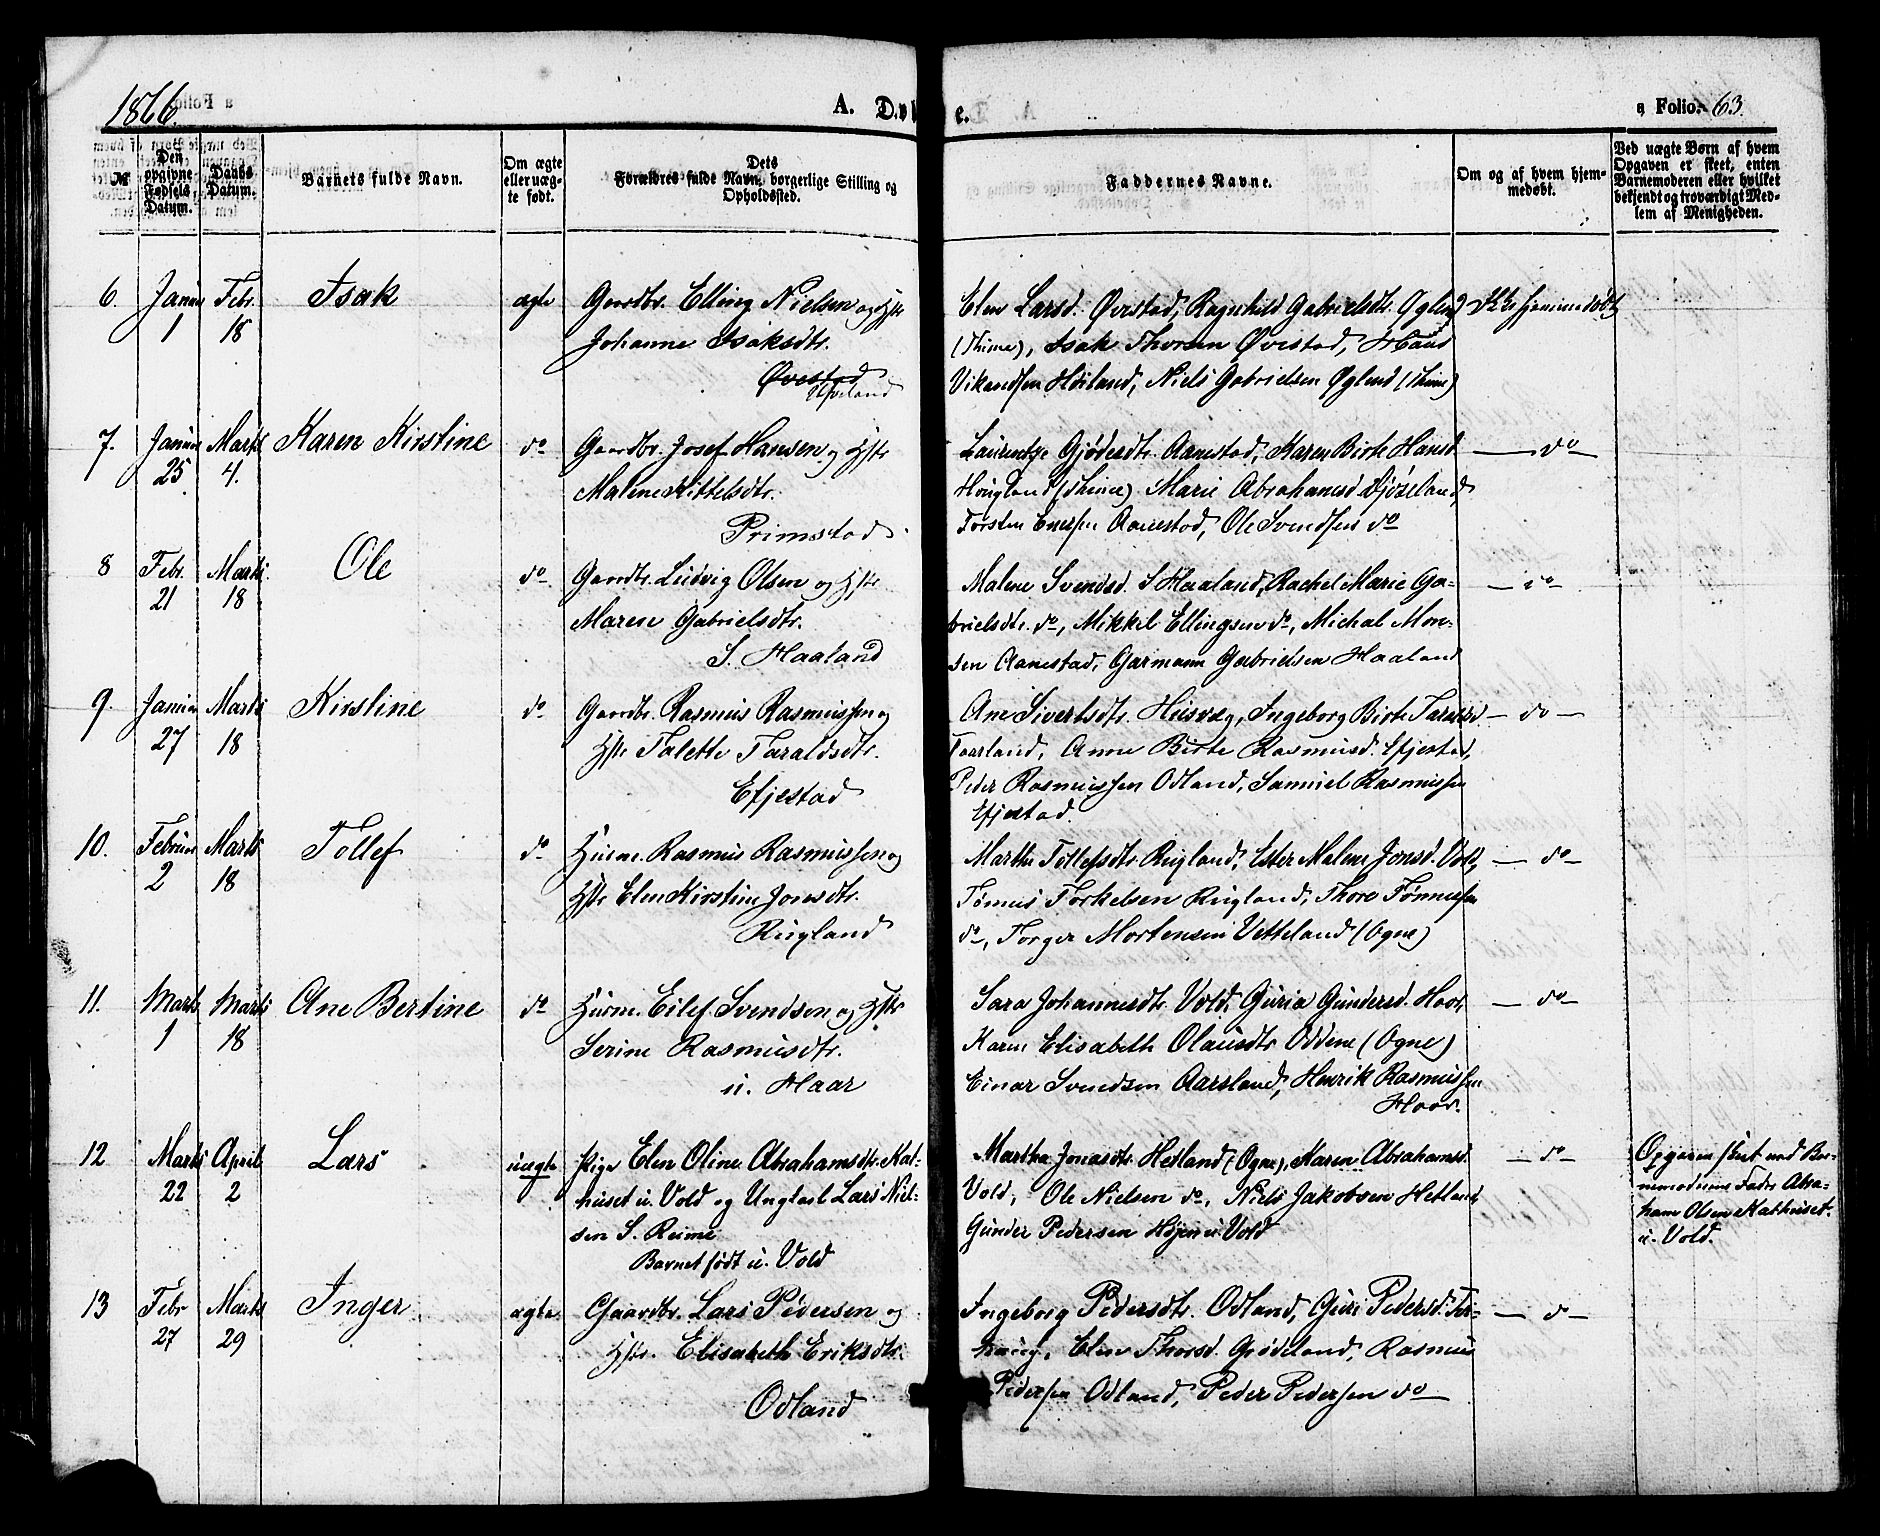 1866.
A. Døbte.
a Folio. 63.
№
Den opgivne Fødsels Datum.
Daabs Datum.
Barnets fulde Navn.
Om ægte eller uægte født.
Dets Forældres fulde Navn, borgerlige Stilling og Opholdssted.
Faddernes Navne.
Om og af hvem hjemmedøbt.
Ved uægte Børn af hvem Opgaven er skeet, enten Barnemoderen eller hvilket bekjendt og troværdigt Medlem af Menigheden.
6. Januar 1 Febr. 18 Isak ægte
Gaardbr. Elling Nielsen og Hstr
Johanne Isaksdtr.
Øvestad
Ueland
Elen Larsd. Øvestad, Ragnhild Gabrielsdtr. Øglend
(Thime), Isak Thorsen Øvestad,
Høiland, Niels Gabrielsen Øglend (Thime)
Ikke hjemmedøbt
7. Januar 25 Marts 4. Karen Kirstine do
Gaardbr. Josef Hansen og Hstr
Malene Kittelsdtr.
Primstad
Laurentze Gjødesdtr. Aanestad, Karen Birte Hansd
Hougland (Thime). Marie Abrahamsd Njözeland,
Torsten Enersen Aanestad, Ole Svendsen do
do
8 Febr. 21 Marts 18 Ole do
Gaardbr. Ludvig Olsen og Hstr
Maren Gabrielsdtr.
S. Haaland
Malene Svendsd. S Haaland, Rachel Marie Ga-
brielsdtr. do, Mikkel Ellingsen do, Michal Mon-
sen Aanestad, Garmann Gabrielsen Haaland
do
9. Januar 27 Marts 18 Kirstine do
Gaardbr. Rasmus Rasmussen og
Hstr Talette Taraldsdtr.
Efjestad
Ane Sivertsdtr. Husvæg, Ingeborg Birte Taraldsd
Taarland, Anne Birte Rasmusd. Efjestad,
Peder Rasmussen Odland, Samuel Rasmussen
Efjestad.
do
10. Februar 2 Marts 18 Tollef do
Husm. Rasmus Rasmussen og
Hstr Elen Kirstine Jonasdtr.
Rugland
Marthe Tollefsdtr. Rugland, Ester Malene Jonsd. Vold,
Tønnes Torkelsen Rugland, Thore Tønnessen
do, Torger Mortensen Vetteland (Ogne)
do
11. Marts 1 Marts 18 Ane Bertine do
Husm. Eilef Svendsen og Hstr
Serine Rasmusdtr.
u. Haar
Sara Johannesdtr. Vold, Guria Gundersd. Haar,
Karen Elisabeth Olausdtr Oddene (Ogne)
Einar Svendsen Aarsland, Henrik Rasmussen
Haar.
do
12 Marts 22 April 2 Lars uægte
Pige Elen Oline Abrahamsdtr. Kat-
huset u. Vold og Ungkarl Lars Niel-
sen S. Reime
Barnet født u. Vold
Martha Jonasdtr. Hetland (Ogne), Karen Abrahamsd.
Vold, Ole Nielsen do, Niels Jakobsen Hetland
Gunder Pedersen Højen u. Vold
do
Opgaven skeet ved Bar-
nemoderens Fader Abra-
ham Olsen Kathuset.
u. Vold.
13 Febr 27 Marts 29 Inger ægte
Gaardbr. Lars Pedersen og
Hstr. Elisabeth Eriksdtr.
Odland
Ingeborg Pedersdtr. Odland, Guri Pedersd. Ter-
houg, Elen Thorsd. Grødeland, Rasmus
Pedersen Odland, Peder Pedersen do
do